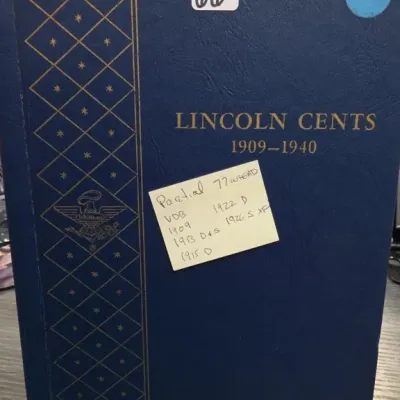 LINCOLN CENTS
1909–1940
Partial 77 wheat
VDB 1922 D
1909 1926 S XF
1913 D+S
1915 D